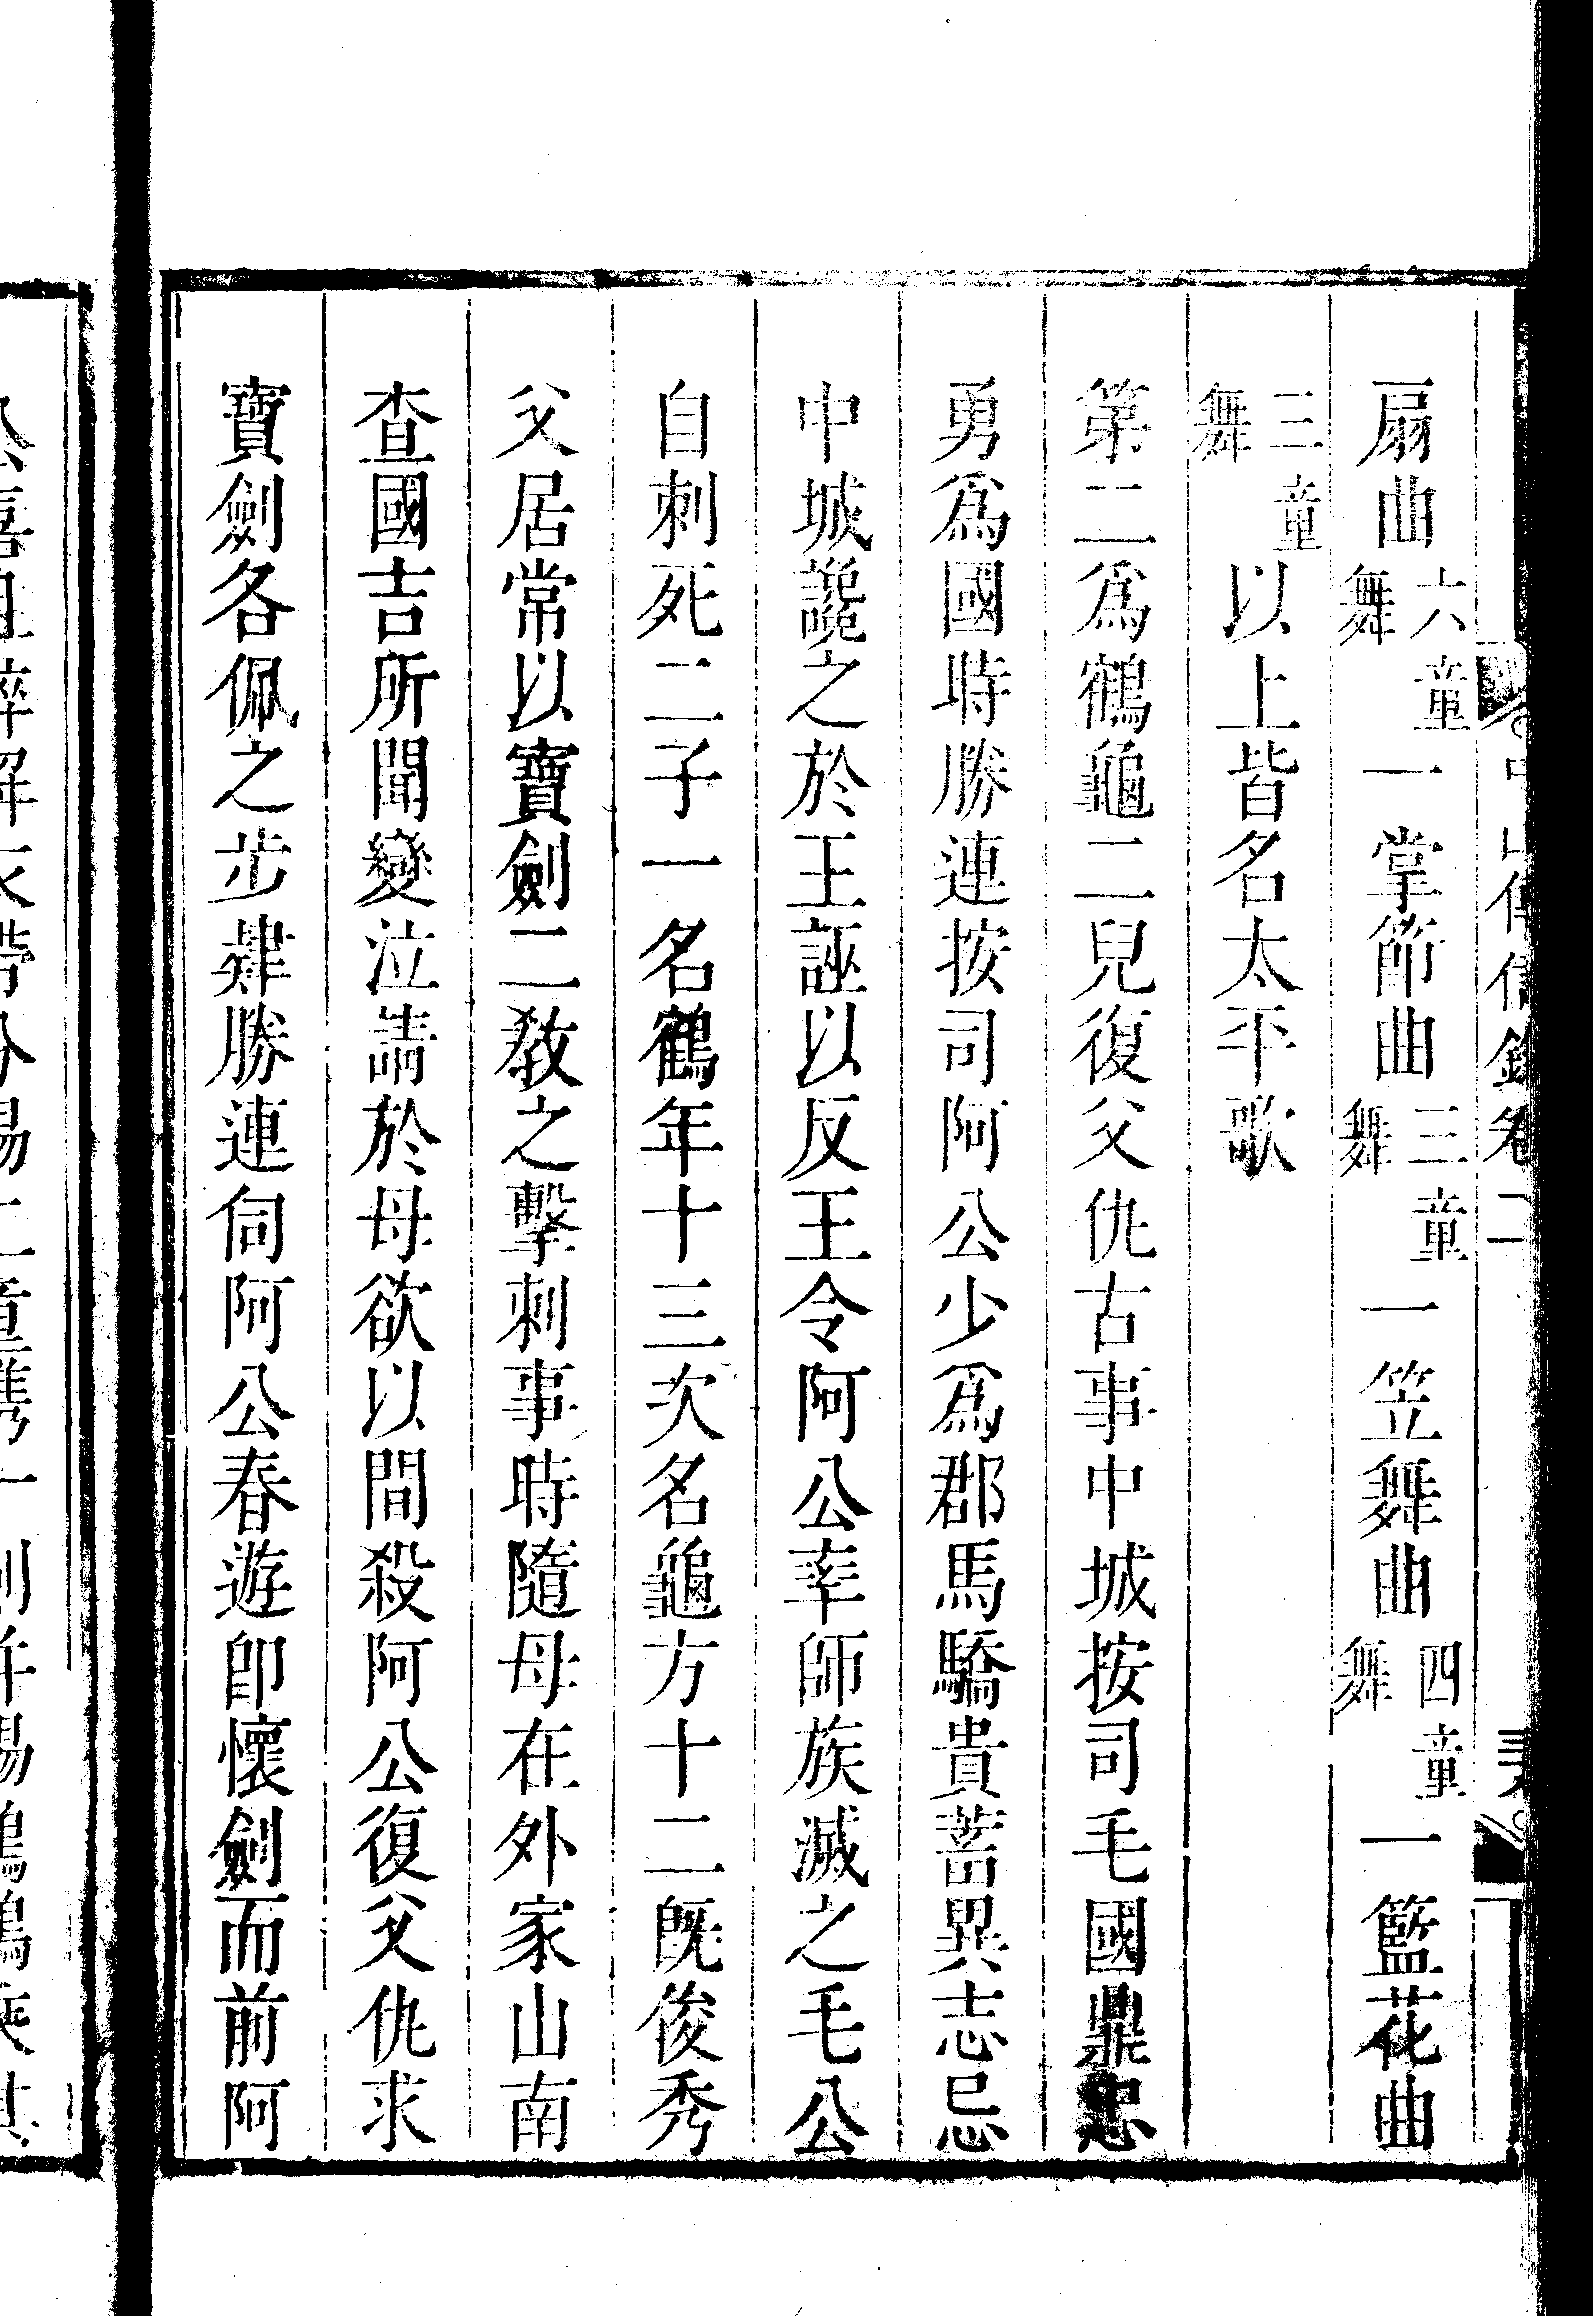 中山傳信錄卷二
扇曲六童舞一掌節曲三童舞一笠舞曲四童舞一籃花曲
三童舞以上皆名太平歌
第二爲鶴龜二兒復父仇古事中城按司毛國鼎忠
勇爲國時勝連按司阿公少爲郡馬驕貴蓄異志忌
中城讒之於王誣以反王令阿公率師族滅之毛公
自刺死二子一名鶴年十三次名龜方十二既俊秀
父居常以寶劍二教之擊刺事時隨母在外家山南
查國吉所聞變泣請於母欲以間殺阿公復父仇求
寶劍各佩之步肄勝連伺阿公春遊卽懷劍而前阿